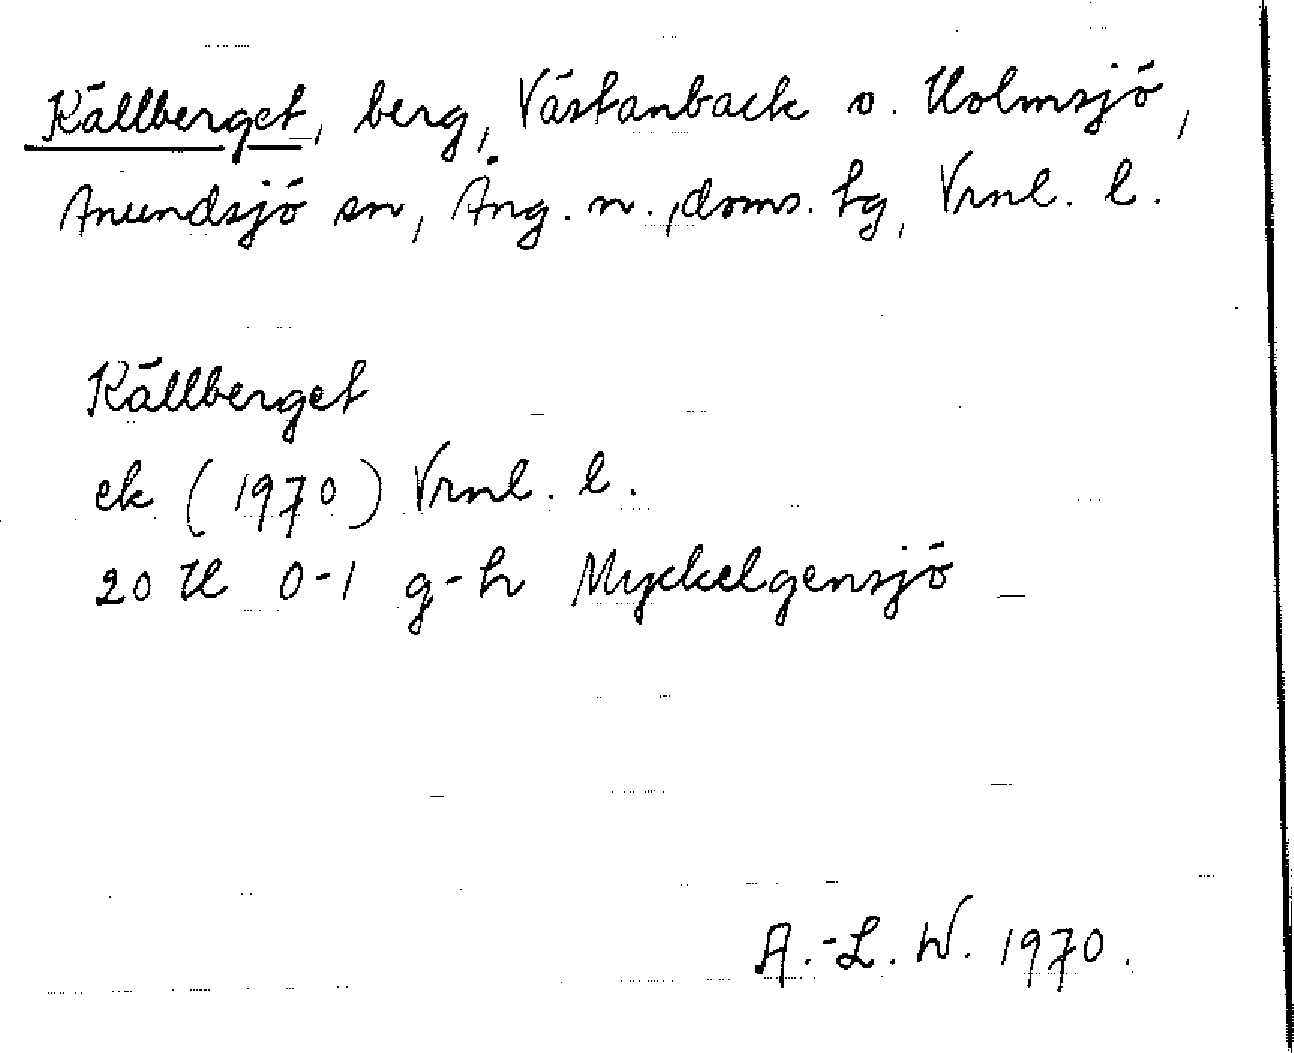 Källberget, berg, Västanback o. Holmsjö,
Anundsjö sn, Ång. n. doms. tg, Vrnl. l.
Källberget
ek (1970) Vrnl. l.
20 H 0-1 g-h Myckelgensjö
A.-L. W. 1970.